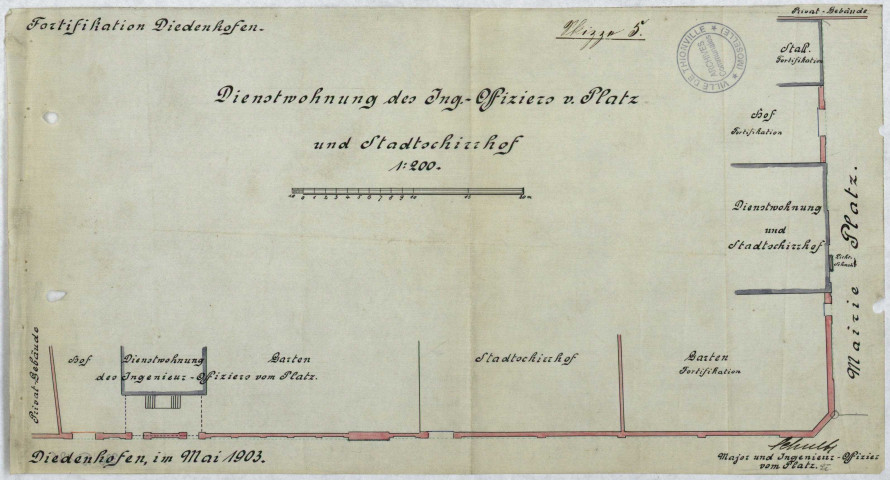 Fortifikation Diedenhofen.
Skizze 5.
VILLE DE THIONVILLE (MOSELLE)
ARCHIVES
Communales
Dienstwohnung des Ing.-Offiziers v. Platz
und Stadtschirrhof
1:200.
10 0 1 2 3 4 5 6 7 8 9 10 15 20 m
Privat-Gebäude
Stall.
Fortifikation
Hof
Fortifikation
Dienstwohnung
und
Stadtschirrhof
Licht-
Schacht
Mairie-Platz.
Privat-Gebäude
Hof
Dienstwohnung
des Ingenieur-Offiziers vom Platz.
Garten
Stadtschirrhof
Garten
Fortifikation
Diedenhofen, im Mai 1903.
Schultz
Major und Ingenieur-Offizier
vom Platz.